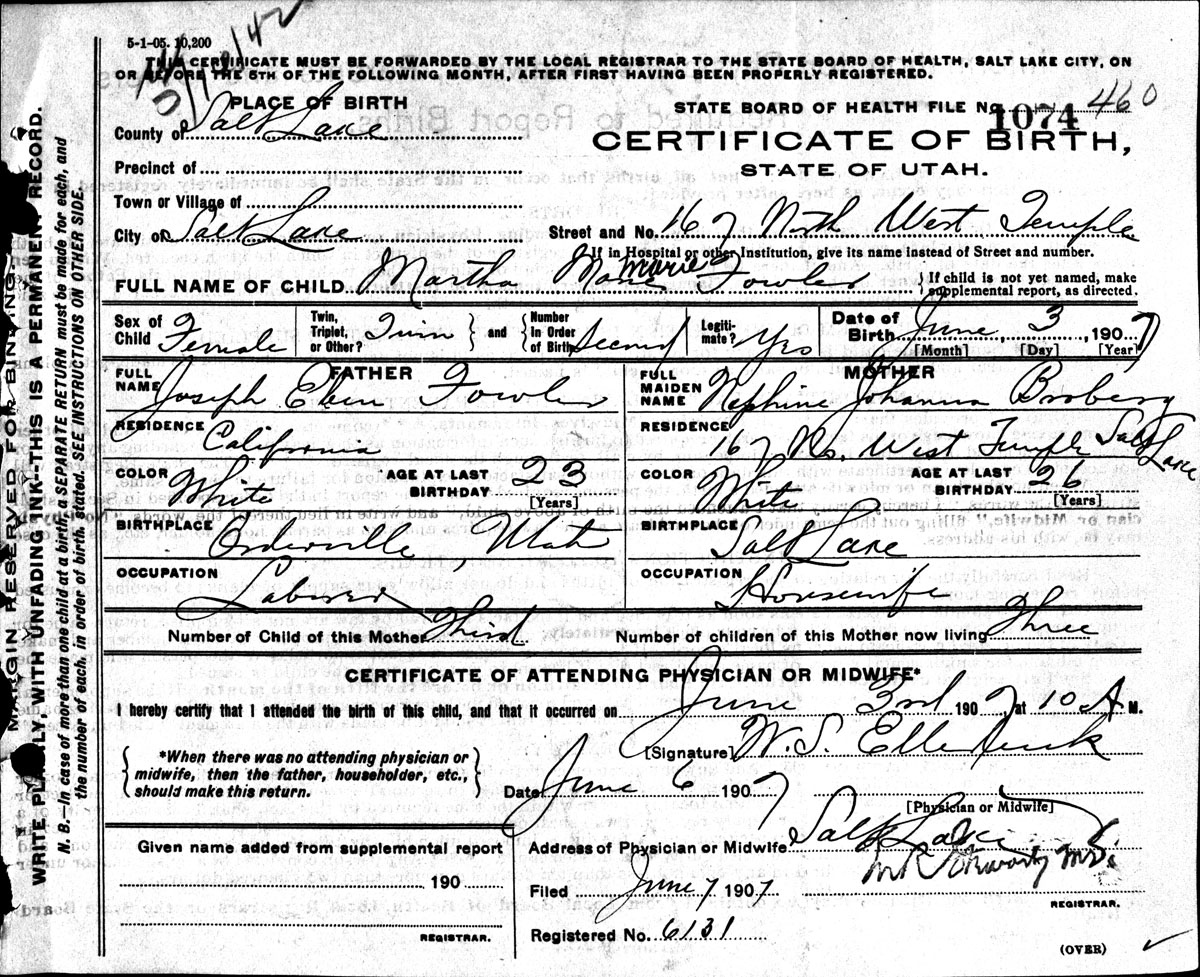 5-1-05. 10,200
THIS CERTIFICATE MUST BE FORWARDED BY THE LOCAL REGISTRAR TO THE STATE BOARD OF HEALTH, SALT LAKE CITY, ON
OR BEFORE THE 5TH OF THE FOLLOWING MONTH, AFTER FIRST HAVING BEEN PROPERLY REGISTERED.
PLACE OF BIRTH
County of Salt Lake
Precinct of
Town or Village of
City of Salt Lake
STATE BOARD OF HEALTH FILE No. 1074 460
CERTIFICATE OF BIRTH,
STATE OF UTAH.
Street and No. 167 North West Temple
If in Hospital or other Institution, give its name instead of Street and number.
FULL NAME OF CHILD Martha Marie Fowler
Marie
If child is not yet named, make
supplemental report, as directed.
Sex of Child Female
Twin, Triplet, or Other? Twin and Number In Order of Birth Second
Legitimate? Yes
Date of Birth June 3, 1907
[Month] [Day] [Year]
FATHER
FULL NAME Joseph Eben Fowler
RESIDENCE California
COLOR White AGE AT LAST BIRTHDAY 23
[Years]
BIRTHPLACE Orderville Utah
OCCUPATION Laborer
MOTHER
FULL MAIDEN NAME Nephine Johanna Broberg
RESIDENCE 167 No. West Temple Salt Lake
COLOR White AGE AT LAST BIRTHDAY 26
[Years]
BIRTHPLACE Salt Lake
OCCUPATION Housewife
Number of Child of this Mother Third
Number of children of this Mother now living Three
CERTIFICATE OF ATTENDING PHYSICIAN OR MIDWIFE*
I hereby certify that I attended the birth of this child, and that it occurred on June 3rd 1907, at 10 A M.
*When there was no attending physician or
midwife, then the father, householder, etc.,
should make this return.
[Signature] W. S. Ellerbeck
Date June 6 1907
[Physician or Midwife]
Address of Physician or Midwife Salt Lake
Given name added from supplemental report
190
REGISTRAR.
Filed June 7, 1907
M.D.
REGISTRAR.
Registered No. 6131
(OVER)
MARGIN RESERVED FOR BINDING.
WRITE PLAINLY, WITH UNFADING INK--THIS IS A PERMANENT RECORD.
N. B.—In case of more than one child at a birth, a SEPARATE RETURN must be made for each, and
the number of each, in order of birth, stated. SEE INSTRUCTIONS ON OTHER SIDE